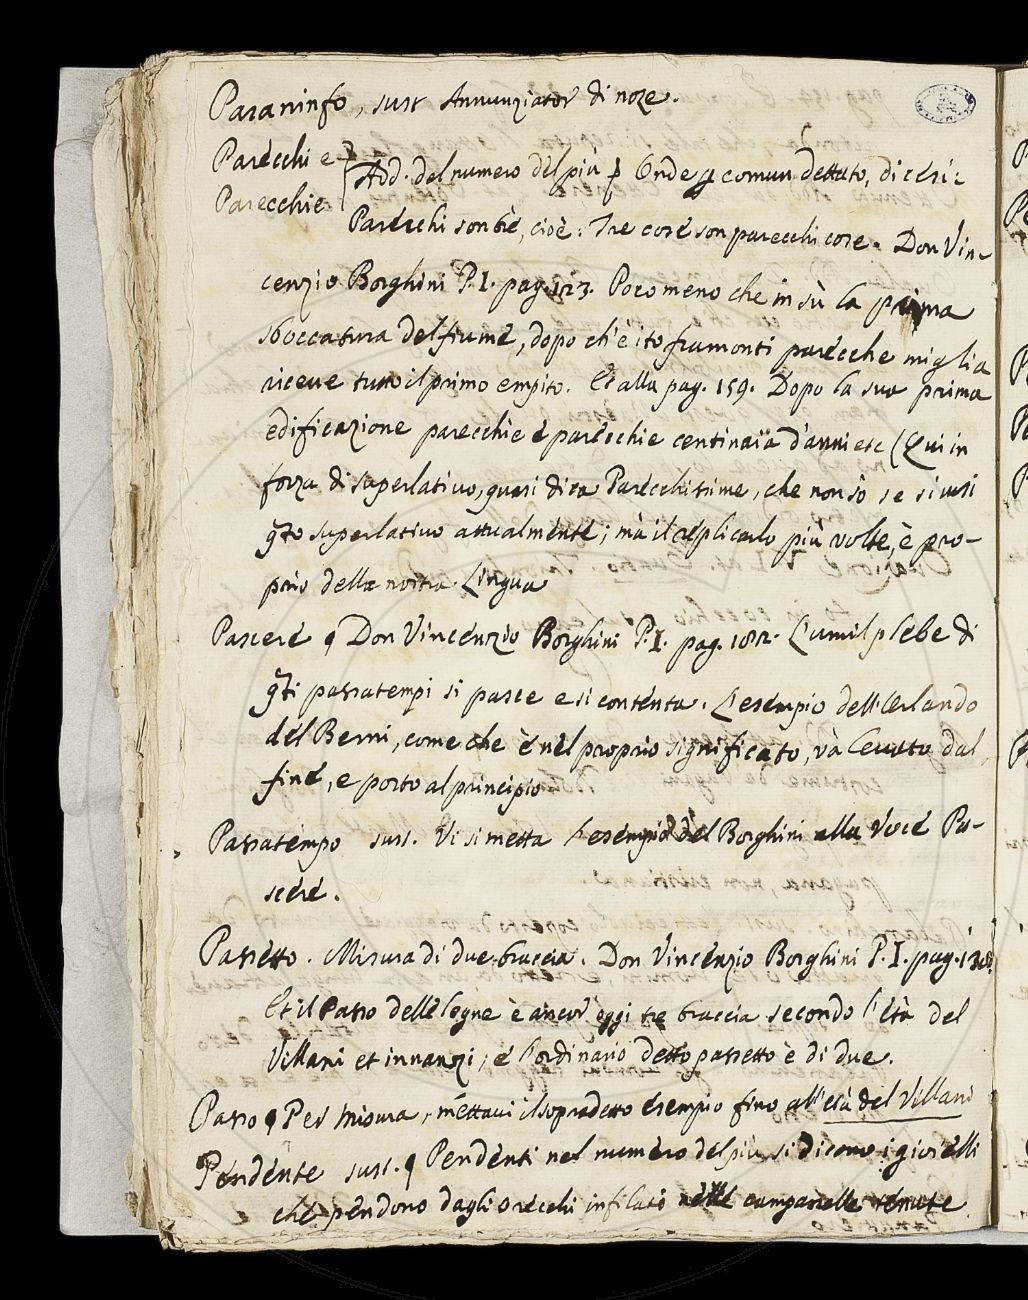 Paraninfo, sust Annunziator di noze.
Parecchi e
Parecchie
Add. del numero del piu ꝑ Onde ꝑ comun dettato, dicesi:
Parecchi son tre, cioè: Tre cose son parecchi cose. Don Vin-
cenzio Borghini P.I. pag. 123. Poco meno che in sù la prima
sboccatura del fiume, dopo ch'è ito fra monti parecche miglia
riceve tutto il primo empito. Et alla pag. 159. Dopo la sua prima
edificazione parecchie e parecchie centinaia d'anni etc (Qui in
forza di superlativo, quasi dica Parecchissime, che non sò se si usi
qto superlativo attualmente; mà il replicarlo più volte, è pro-
prio della nostra Lingua
Pascere § Don Vincenzio Borghini P.I. pag. 182. L'umil plebe di
qti passatempi si pasce e si contenta. L'esempio dell'Orlando
del Berni, come che è nel proprio significato, và levato dal
fine, e posto al principio
Passatempo sust. Vi si metta l'esempio del Borghini alla Voce Pa-
scere.
Passetto. Misura di due braccia. Don Vincenzio Borghini P.I. pag. 130.
Et il Passo delle legne è ancor oggi tre braccia secondo l'età del
Villani et innanzi, e l'ordinario detto passetto è di due.
Passo § Per Misura, mettavi il sopradetto esempio fino all'età del Villani
Pendente sust. § Pendenti nel numero del più si dicono i gioielli
che pendono dagli orecchi infilati nelle campanelle tenute